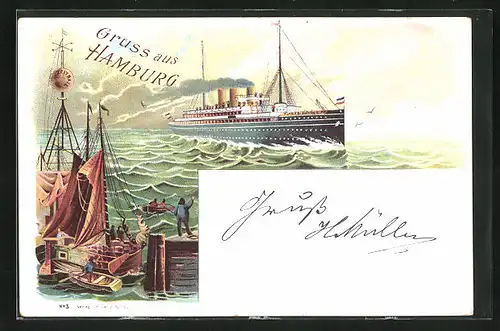 Gruss aus
HAMBURG
Gruß
H. Müller